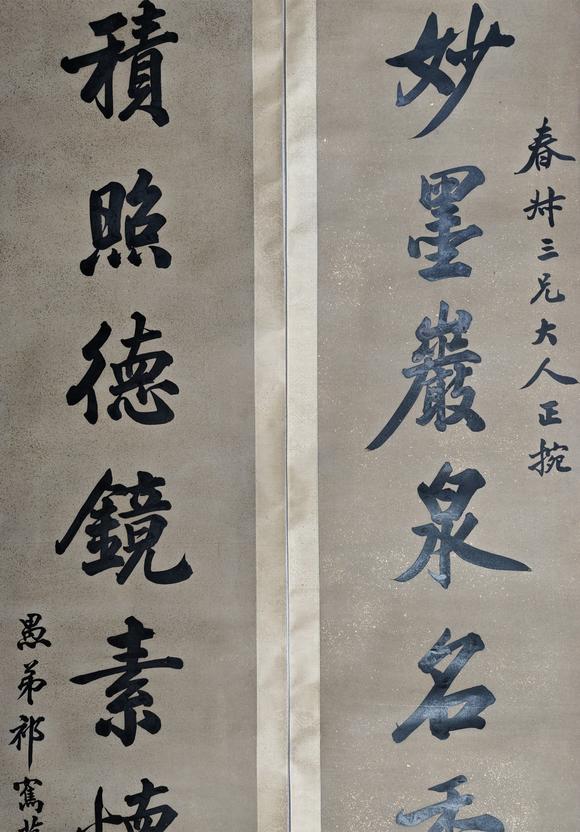 春艸三兄大人正捥
妙墨巖泉名
積照德鏡素
愚弟祁寯